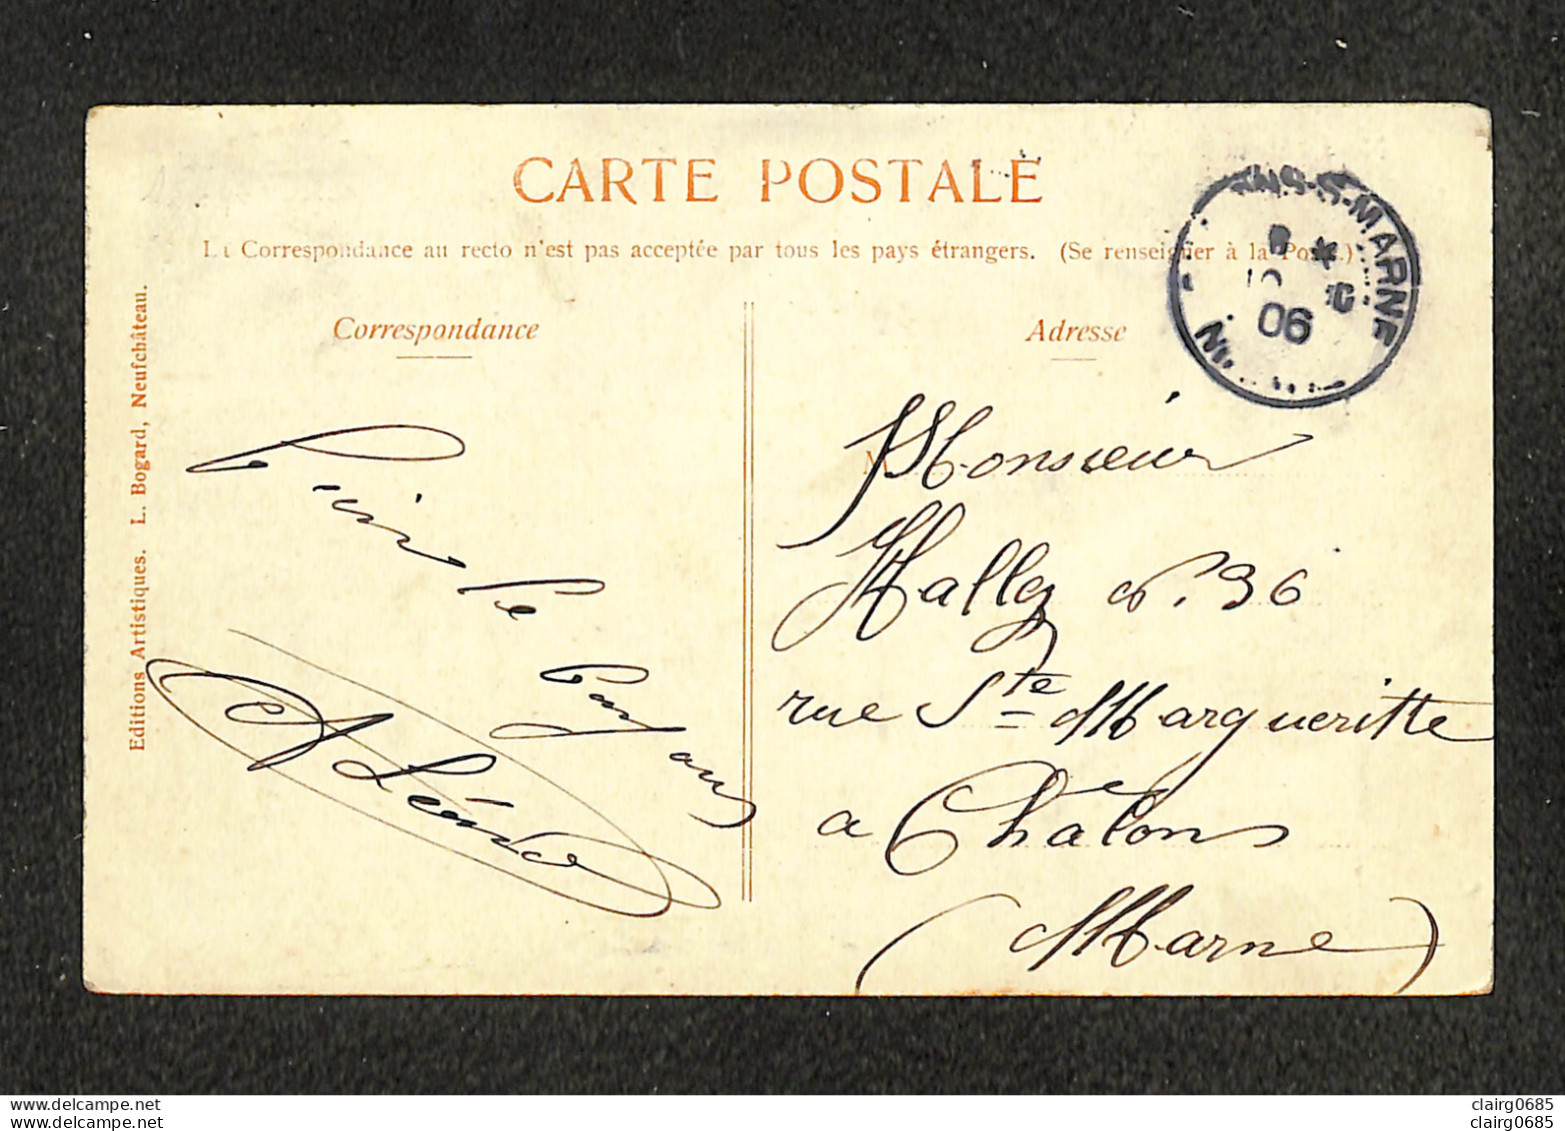 CARTE POSTALE
La Correspondance au recto n'est pas acceptée par tous les pays étrangers. (Se renseigner à la Poste.)
Correspondance
Adresse
Editions Artistiques. L. Bogard, Neufchâteau.
NS-S-MARNE
06
Monsieur
Hally n°. 36
rue Ste Margueritte
a Chalons
(Marne)
delcampe.net
clairg0685
delcampe.net
clairg0685